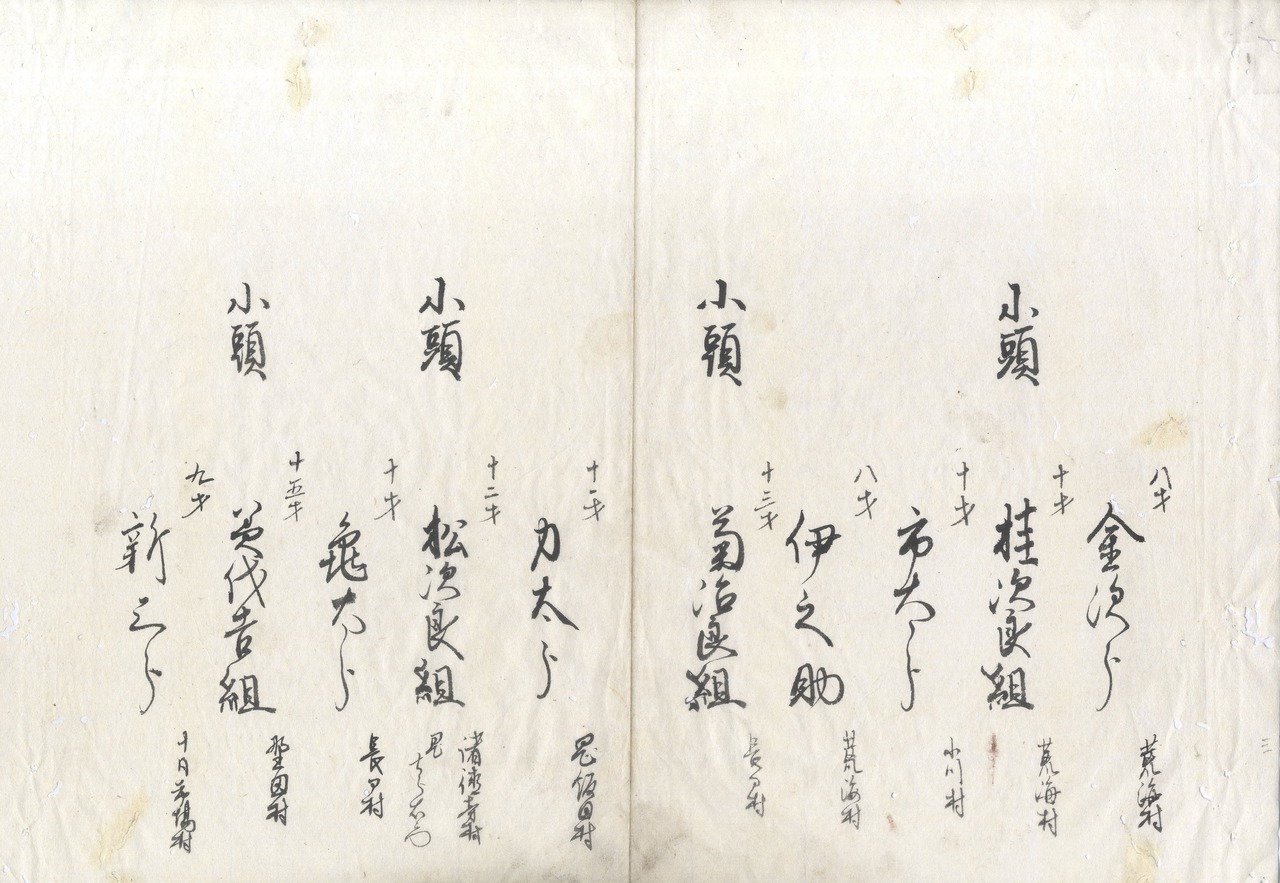 八才
金次郎
荒海村
十才
小頭
桂次良組
荒海村
十才
市太郎
小川村
八才
伊之助
荒海村
十三才
小頭
菊治良組
長沼村
十一才
力太郎
飯田村
十二才
小頭
松次良組
諸徳寺村
十才
亀太郎
長沼村
十五才
小頭
代吉組
野田村
九才
新三郎
十日市場村